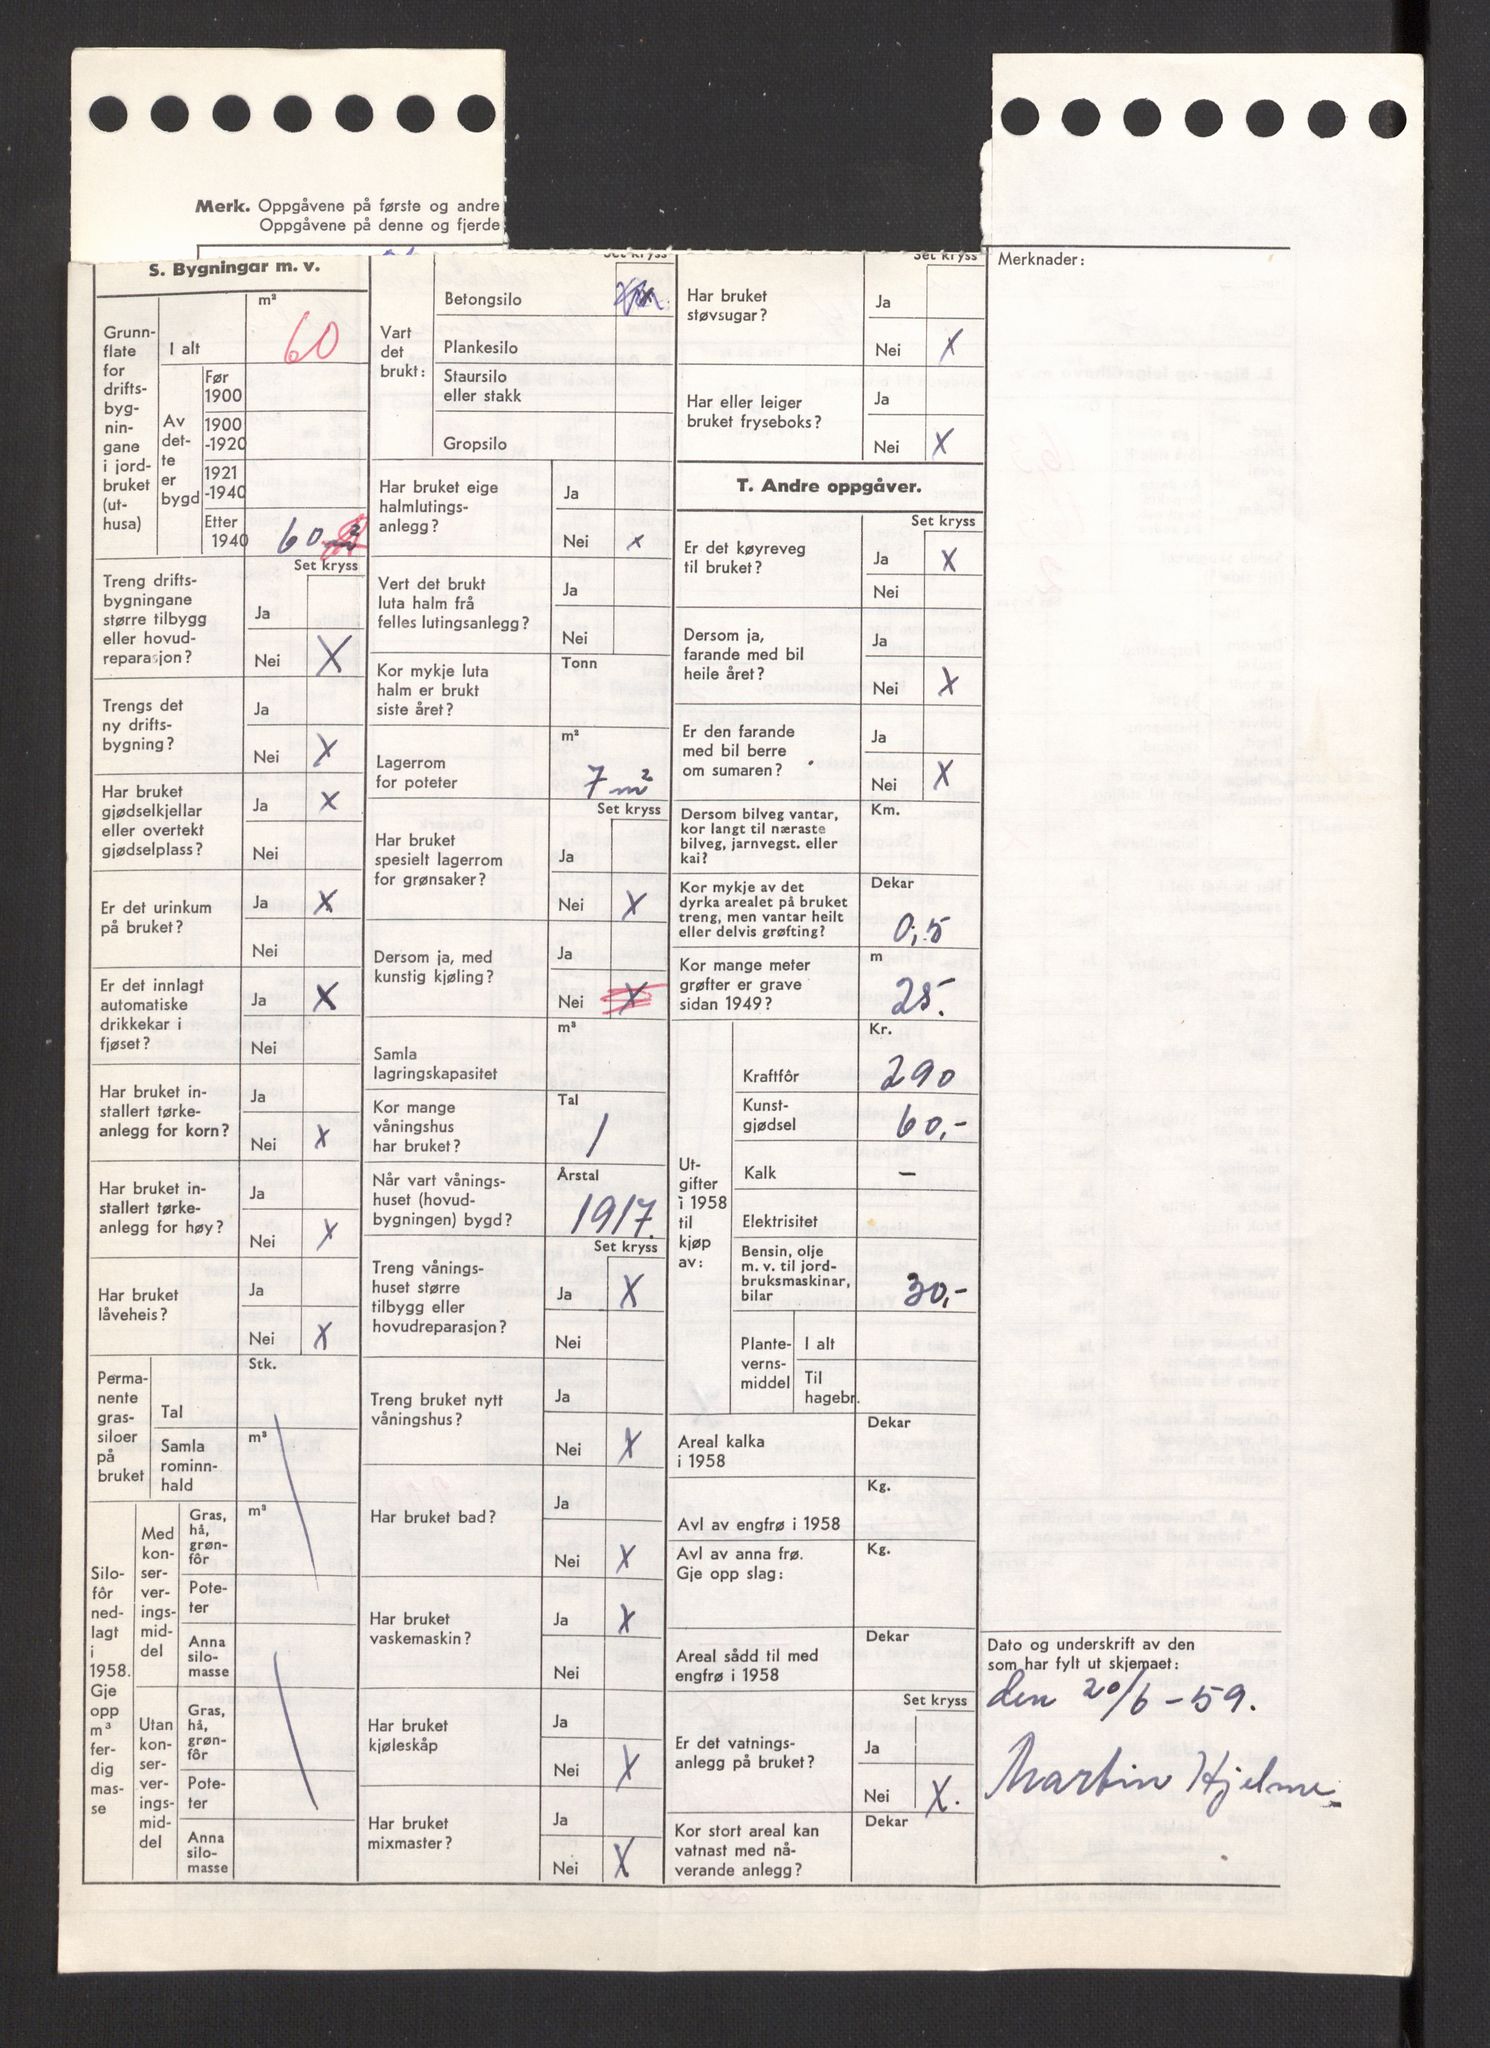 Merk. Oppgåvene på første og andre
Oppgåvene på denne og fjerde
S. Bygningar m. v.
m²
Grunn-
flate
for
drifts-
byg-
nin-
gane
i jord-
bruket
(ut-
husa)
I alt
60
Av
det-
te
er
bygd
Før
1900
1900
-1920
1921
-1940
Etter
1940
60 m²
Set kryss
Treng drifts-
bygningane
større tilbygg
eller hovud-
reparasjon?
Ja
Nei X
Trengs det
ny drifts-
bygning?
Ja
Nei X
Har bruket
gjødselkjellar
eller overtekt
gjødselplass?
Ja X
Nei
Er det urinkum
på bruket?
Ja X
Nei
Er det innlagt
automatiske
drikkekar i
fjøset?
Ja X
Nei
Har bruket in-
stallert tørke-
anlegg for korn?
Ja
Nei X
Har bruket in-
stallert tørke-
anlegg for høy?
Ja
Nei X
Har bruket
låveheis?
Ja
Nei X
Perma-
nente
gras-
siloer
på
bruket
Stk.
Tal
Samla
rominn-
hald
m³
Silo-
fôr
ned-
lagt
i
1958.
Gje
opp
m³
fer-
dig
mas-
se
Med
kon-
ser-
ver-
ings-
mid-
del
m³
Gras,
hå,
grøn-
fôr
Pote-
ter
Anna
silo-
masse
Utan
kon-
ser-
ver-
ings-
mid-
del
Gras,
hå,
grøn-
fôr
Pote-
ter
Anna
silo-
masse
Set kryss
Vart
det
brukt:
Betongsilo
Plankesilo
Staursilo
eller stakk
Gropsilo
Har bruket eige
halmlutings-
anlegg?
Ja
Nei x
Vert det brukt
luta halm frå
felles lutingsanlegg?
Ja
Nei
Kor mykje luta
halm er brukt
siste året?
Tonn
Lagerrom
for poteter
m²
7 m²
Set kryss
Har bruket
spesielt lagerrom
for grønsaker?
Ja
Nei X
Dersom ja, med
kunstig kjøling?
Ja
Nei X
Samla
lagringskapasitet
m³
Kor mange
våningshus
har bruket?
Tal
1
Når vart vånings-
huset (hovud-
bygningen) bygd?
Årstal
1917.
Set kryss
Treng vånings-
huset større
tilbygg eller
hovudreparasjon?
Ja X
Nei
Treng bruket nytt
våningshus?
Ja
Nei X
Har bruket bad?
Ja
Nei X
Har bruket
vaskemaskin?
Ja X
Nei
Har bruket
kjøleskåp
Ja
Nei X
Har bruket
mixmaster?
Ja
Nei X
Set kryss
Har bruket
støvsugar?
Ja
Nei X
Har eller leiger
bruket fryseboks?
Ja
Nei X
T. Andre oppgåver.
Set kryss
Er det køyreveg
til bruket?
Ja X
Nei
Dersom ja,
farande med bil
heile året?
Ja
Nei X
Er den farande
med bil berre
om sumaren?
Ja
Nei X
Dersom bilveg vantar,
kor langt til næraste
bilveg, jarnvegst. eller
kai?
Km.
Kor mykje av det
dyrka arealet på bruket
treng, men vantar heilt
eller delvis grøfting?
Dekar
0,5
Kor mange meter
grøfter er grave
sidan 1949?
m
25.
Ut-
gifter
i 1958
til
kjøp
av:
Kr.
Kraftfôr
290
Kunst-
gjødsel
60,-
Kalk
—
Elektrisitet
Bensin, olje
m. v. til jord-
bruksmaskinar,
bilar
30,-
Plante-
verns-
middel
I alt
Til
hagebr.
Areal kalka
i 1958
Dekar
Avl av engfrø i 1958
Kg.
Avl av anna frø.
Gje opp slag:
Kg.
Areal sådd til med
engfrø i 1958
Dekar
Set kryss
Er det vatnings-
anlegg på bruket?
Ja
Nei X.
Kor stort areal kan
vatnast med nå-
verande anlegg?
Dekar
Merknader:
Dato og underskrift av den
som har fylt ut skjemaet:
den 20/6-59.
Martin Hjelme